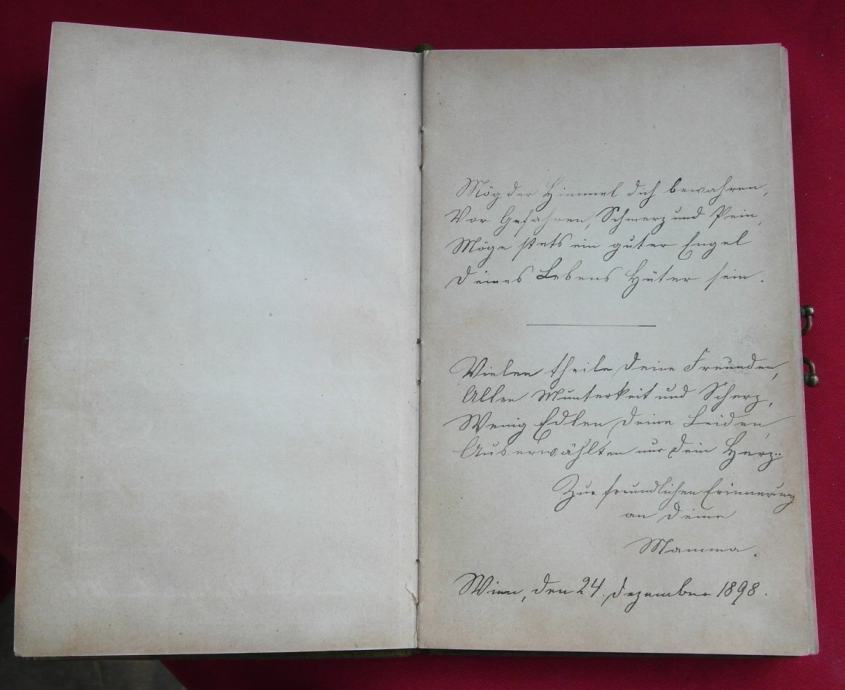 Mög der Himmel dich bewahren,
Vor Gefahren, Schmerz und Pein,
Möge stets ein guter Engel
Deines Lebens Hüter sein.
Vielen theile Deine Freuden,
Allen Munterkeit und Scherz,
Wenig Edlen Deine Leiden,
Auserwählten nur Dein Herz.
Zur freundlichen Erinnerung
an Deine
Mamma.
Wien, den 24. Dezember 1898.